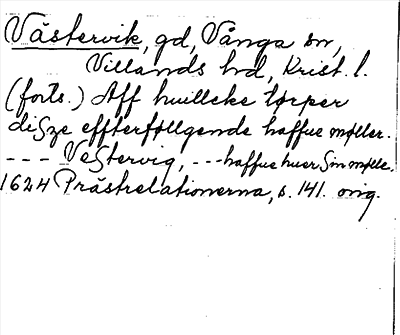 Västervik, gd, Vånga sn,
Villands hd, Krist. l.
(forts.) Aff huilleke tørper
disze effterføllgende haffue møller.
--- Vestervig, --- haffue huer Sin mølle.
1624 Prästrelationerna, s. 141. orig.